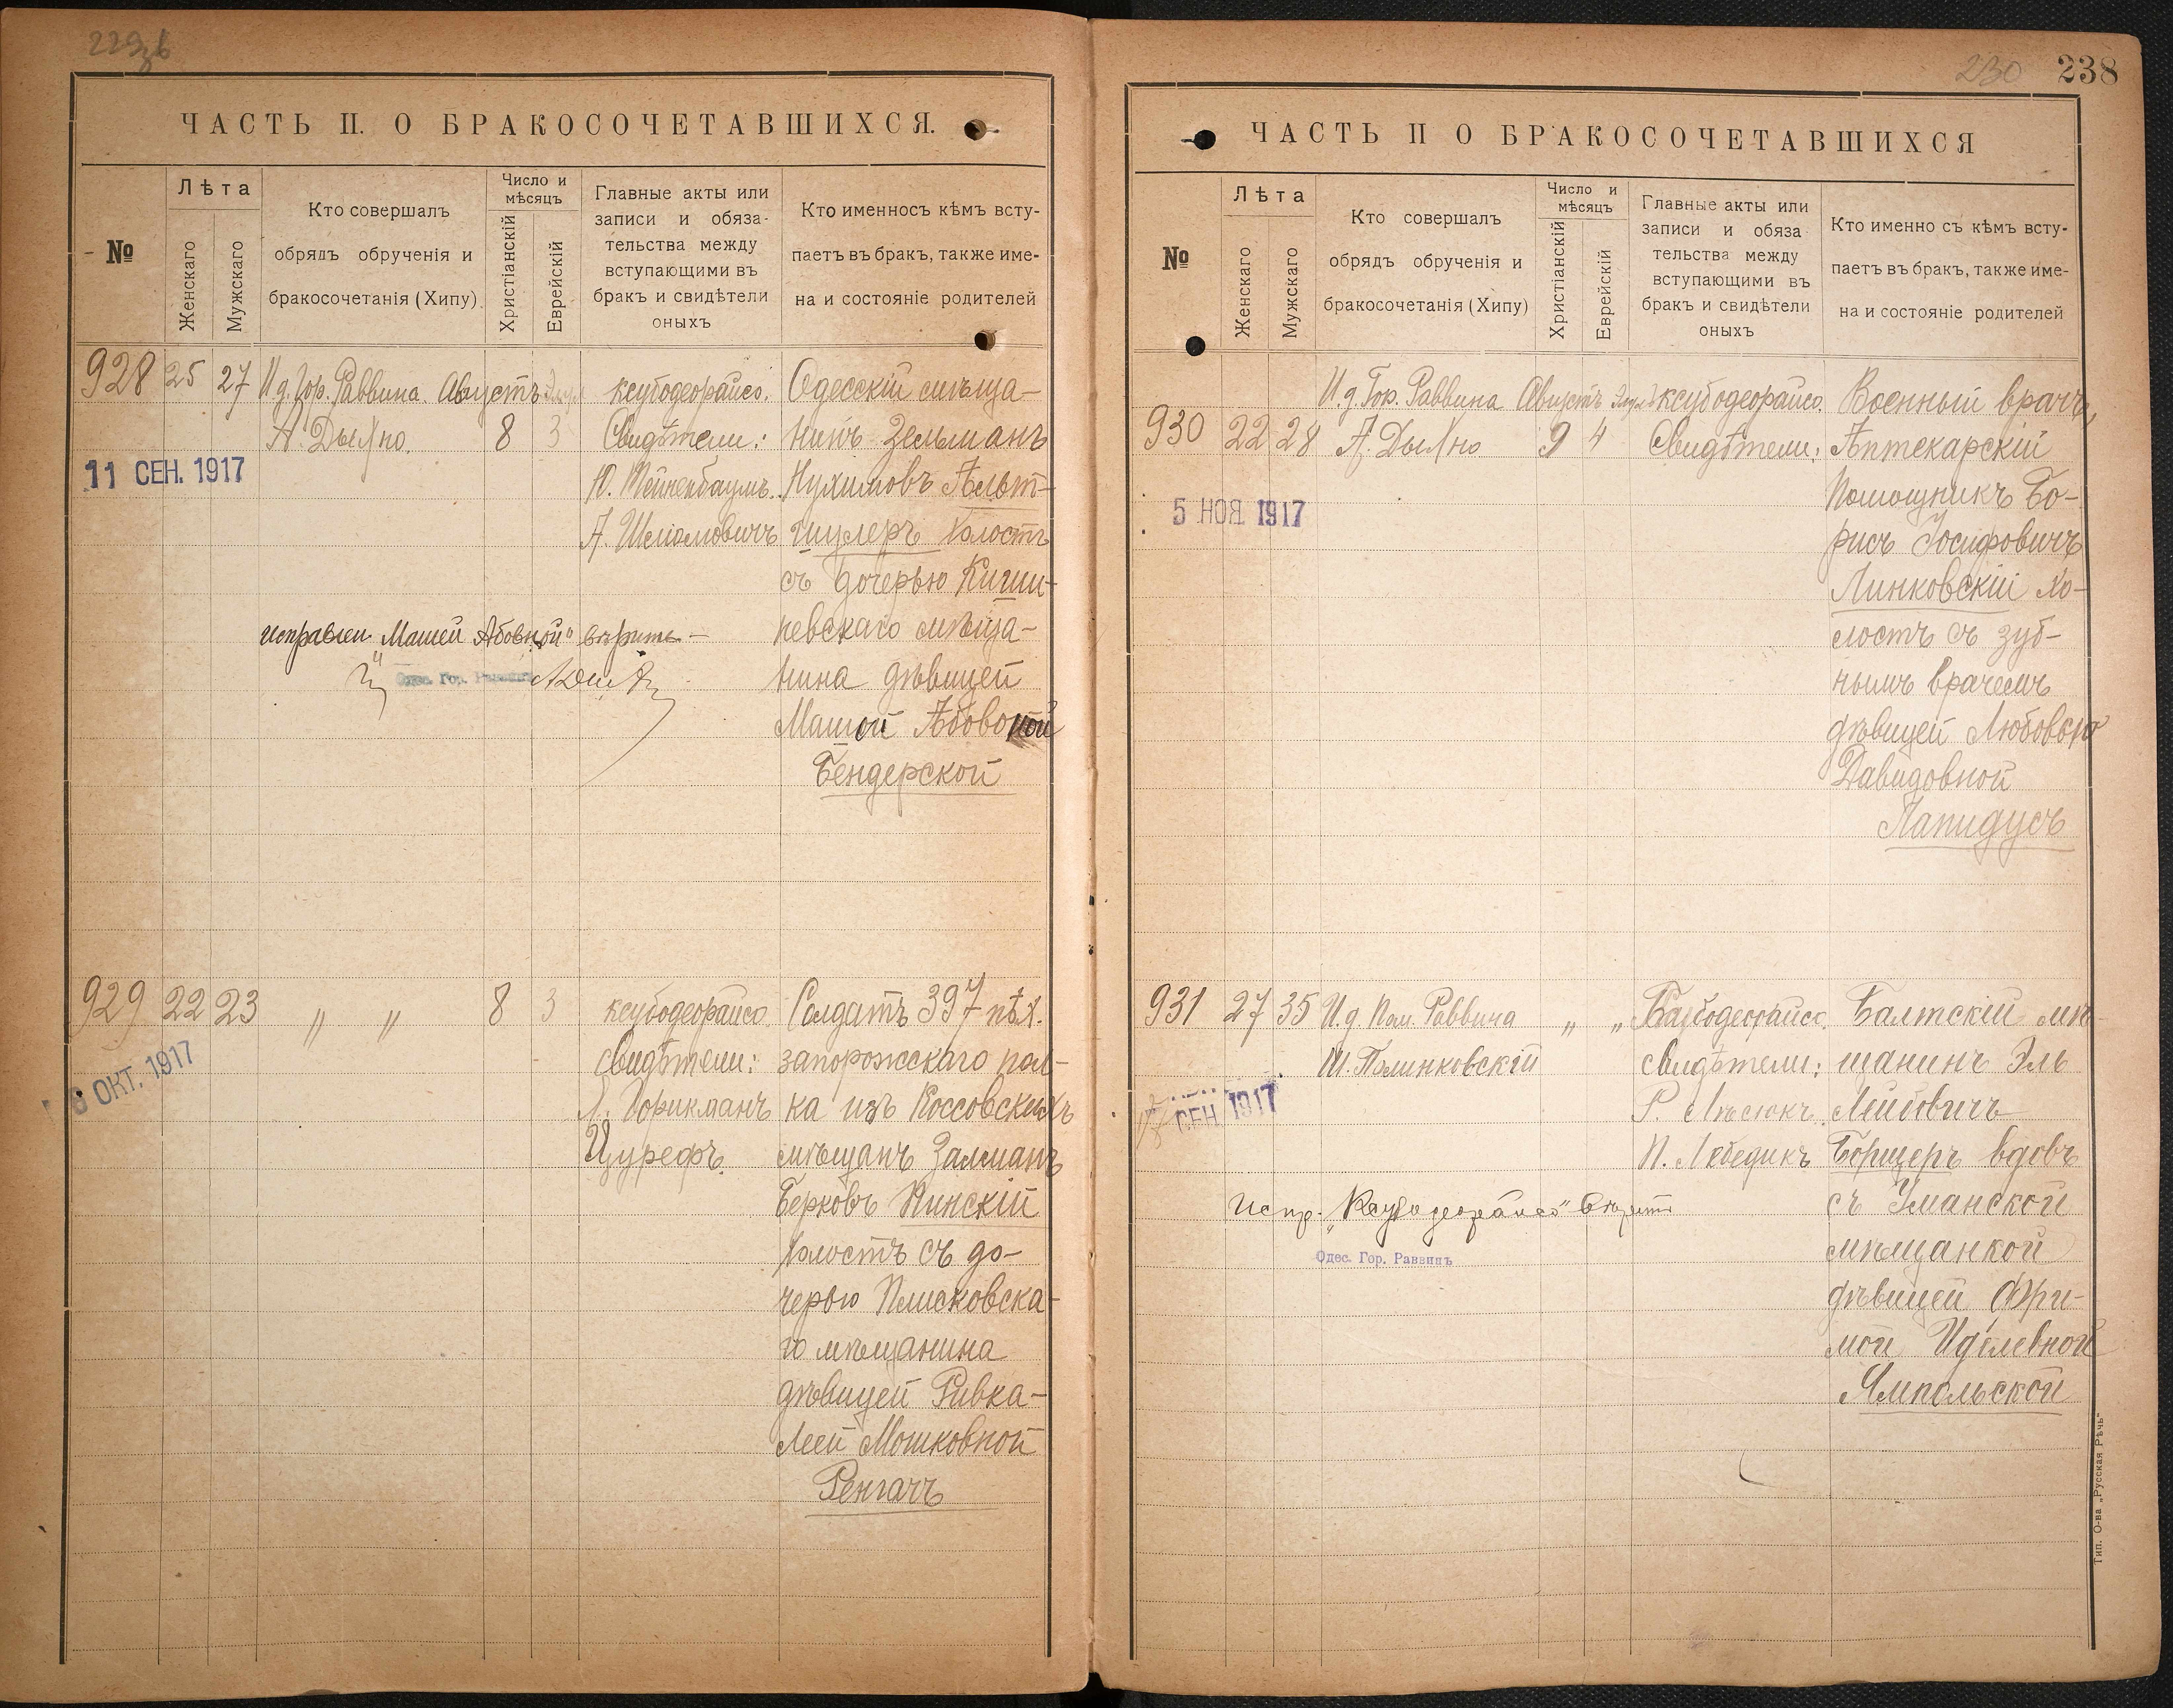 230 238
ЧАСТЬ II. О БРАКОСОЧЕТАВШИХСЯ.
№
Лѣта
Женскаго
Мужскаго
Кто совершалъ
обрядъ обрученія и
бракосочетанія (Хипу)
Число и
мѣсяцъ
Христіанскій
Еврейскій
Главные акты или
записи и обяза-
тельства между
вступающими въ
бракъ и свидѣтели
оныхъ
Кто именносъ кѣмъ всту-
паетъ въ бракъ, также име-
на и состояніе родителей
928 25 27 И.д. Гор. Раввина Августъ
А. Дыхно. 8 3
11 СЕН. 1917
ксубодеорайсо.
Свидѣтели:
А. Шлiомовичъ
Одесскій мѣща-
нинъ Зельманъ
Нухимовъ Альт-
шулеръ холостъ
съ дочерью Киши-
невскаго мѣща-
нина дѣвицей
Машей Абовной
Бендерской
исправлен. „Машей Абовной" вѣрить —
Одес. Гор. Раввинъ
929 22 23 " " 8 3
6 ОКТ. 1917
ксубодеорайсо.
свидѣтели:
Цурефъ.
Солдатъ 397 пѣх.
запорожскаго пол-
ка изъ Коссовскихъ
мѣщанъ Залманъ
Берковъ Пинскій
холостъ съ до-
черью Плисковска-
го мѣщанина
дѣвицей Ривка-
Леей Мошковной
Ренгачъ
ЧАСТЬ II О БРАКОСОЧЕТАВШИХСЯ
№
Лѣта
Женскаго
Мужскаго
Кто совершалъ
обрядъ обрученія и
бракосочетанія (Хипу)
Число и
мѣсяцъ
Христіанскій
Еврейскій
Главные акты или
записи и обяза
тельства между
вступающими въ
бракъ и свидѣтели
оныхъ
Кто именно съ кѣмъ всту-
паетъ въ бракъ, также име-
на и состояніе родителей
И.д. Гор. Раввина Августъ
930 22 28 А. Дыхно 9 4
5 НОЯ 1917
ксубодеорайсо.
Свидѣтели:
Военный врачъ,
Аптекарскій
Помощникъ Бо-
рисъ Іосифовичъ
Линковскій хо-
лостъ съ зуб-
нымъ врачемъ
дѣвицей Любовью
Давидовной
Лапидусъ
931 27 35 И.д. Пом. Раввина " "
Ш. Полинковскій
СЕН 1917
Ксубодеорайсо.
свидѣтели:
П. Лебедикъ
Балтскій мѣ-
щанинъ Эль
Лейбовичъ
Борщеръ вдовъ
съ Уманской
мѣщанкой
дѣвицей Фри-
мой Иделевной
Ямпольской
испр. „Ксубодеорайсо" вѣрить
Одес. Гор. Раввинъ
Тип. О-ва „Русская Рѣчь"